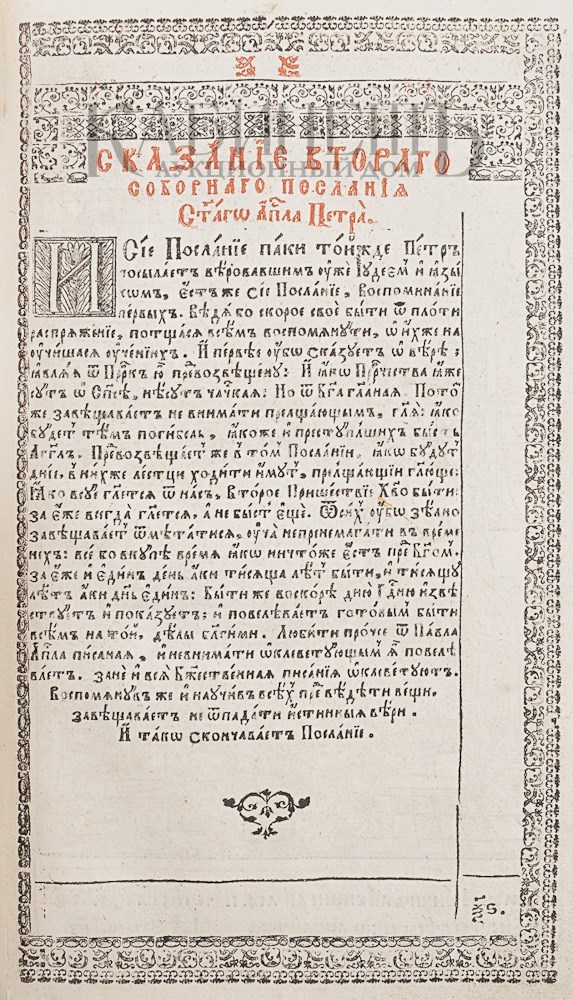 КАБИНЕТЪ
АУКЦИОННЫЙ ДОМ
СКАЗАНЇЕ ВТОРАГО
СОБОРНАГО ПОСЛАНЇѦ
Ст҃агѡ Ап҃ла Петра̀.
И Сїѐ Посла́нїе па́ки то́йжде Пе́тръ
посыла́етъ вѣ́ровавшимъ ѹ҆́же І҆ѹде́ѡм и҆ ꙗ҆зы́
комъ, є҆́стъ же сїѐ Посла́нїе, воспомина́нїе
пе́рвыхъ. Вѣ́дѧ бо ско́рое своѐ бы́ти ѿ пло́ти
распрѧже́нїе, потща́сѧ всѣ́мъ воспомѧнѹ́ти, ѡ҆ ни́хже на
ѹ҆чи́шасѧ ѹ҆че́нїихъ. И҆ пе́рвѣе ѹ҆́бѡ ска́зѹетъ ѡ҆ вѣ́рѣ;
превозвѣ́щенѹ: И҆ ꙗ҆́кѡ
сѹ́тъ ѡ҆ Сп҃сѣ, нѣ́сѹтъ Но ѿ Бг҃а гл҃аная. Пото́м
же завѣщава́етъ не внима́ти прелща́ющымъ, гл҃ѧ: ꙗ҆́кѡ
бѹ́детъ тѣ́мъ поги́бель, ꙗ҆́коже и҆ престѹпльшихъ бы́сть
А҆́гг҃лъ. Превозвѣща́етъ же в то́мъ Посла́нїи, ꙗ҆́кѡ бѹ́дѹтъ
дні́е, в ни́хже лестцы̀ ходи́ти и҆́мѹтъ, прелща́ющїи гл҃юще:
Ꙗ҆́кѡ всѹ́е гл҃етсѧ ѿ на́съ, вто́рое Прише́ствїе Хв҃о бы́ти:
за є҆́же всегда̀ гл҃етсѧ, а҆ не бы́ст є҆щѐ. Ѿ си́хъ ѹ҆́бѡ ѕѣ́лно
завѣщава́етъ ѿмѣта́тисѧ, ѹ҆ча̀ не пренемага́ти в вре́ме
нехъ: все́ бо вкѹ́пѣ вре́мѧ ꙗ҆́кѡ ничто́же є҆́стъ пред Бг҃ом.
за є҆́же и҆ є҆ди́нъ де́нь а҆́ки ты́сѧща лѣ́тъ бы́ти, и҆ ты́сѧщѹ
лѣ́тъ а҆́ки дн҃ь є҆ди́нъ: Бы́ти же вско́рѣ дню̀ Гд҃ню и҆звѣ́
ствѹетъ и҆ пока́зѹетъ; и҆ повелѣва́етъ гото́вымъ бы́ти
всѣ́мъ на то́й, дѣ́лы бл҃ги́ми. Люби́ти про́чее ѿ Па́вла
А҆п҃ла пи́саная, и҆ не внима́ти ѡ҆клеветѹ́ющымъ ꙗ҆̀ повелѣ
ва́етъ. Занѐ и҆ всѧ̀ Бж҃ественная писа́нїѧ ѡ҆клеветѹ́ютъ.
Воспомѧнѹ́въ же и҆ наѹчи́въ всѣ́хъ предвѣ́дѣти ве́щи.
Завѣщава́етъ не ѿпада́ти и҆́стинныѧ вѣ́ры.
И҆ та́кѡ сконча́ваетъ Посла́нїе.